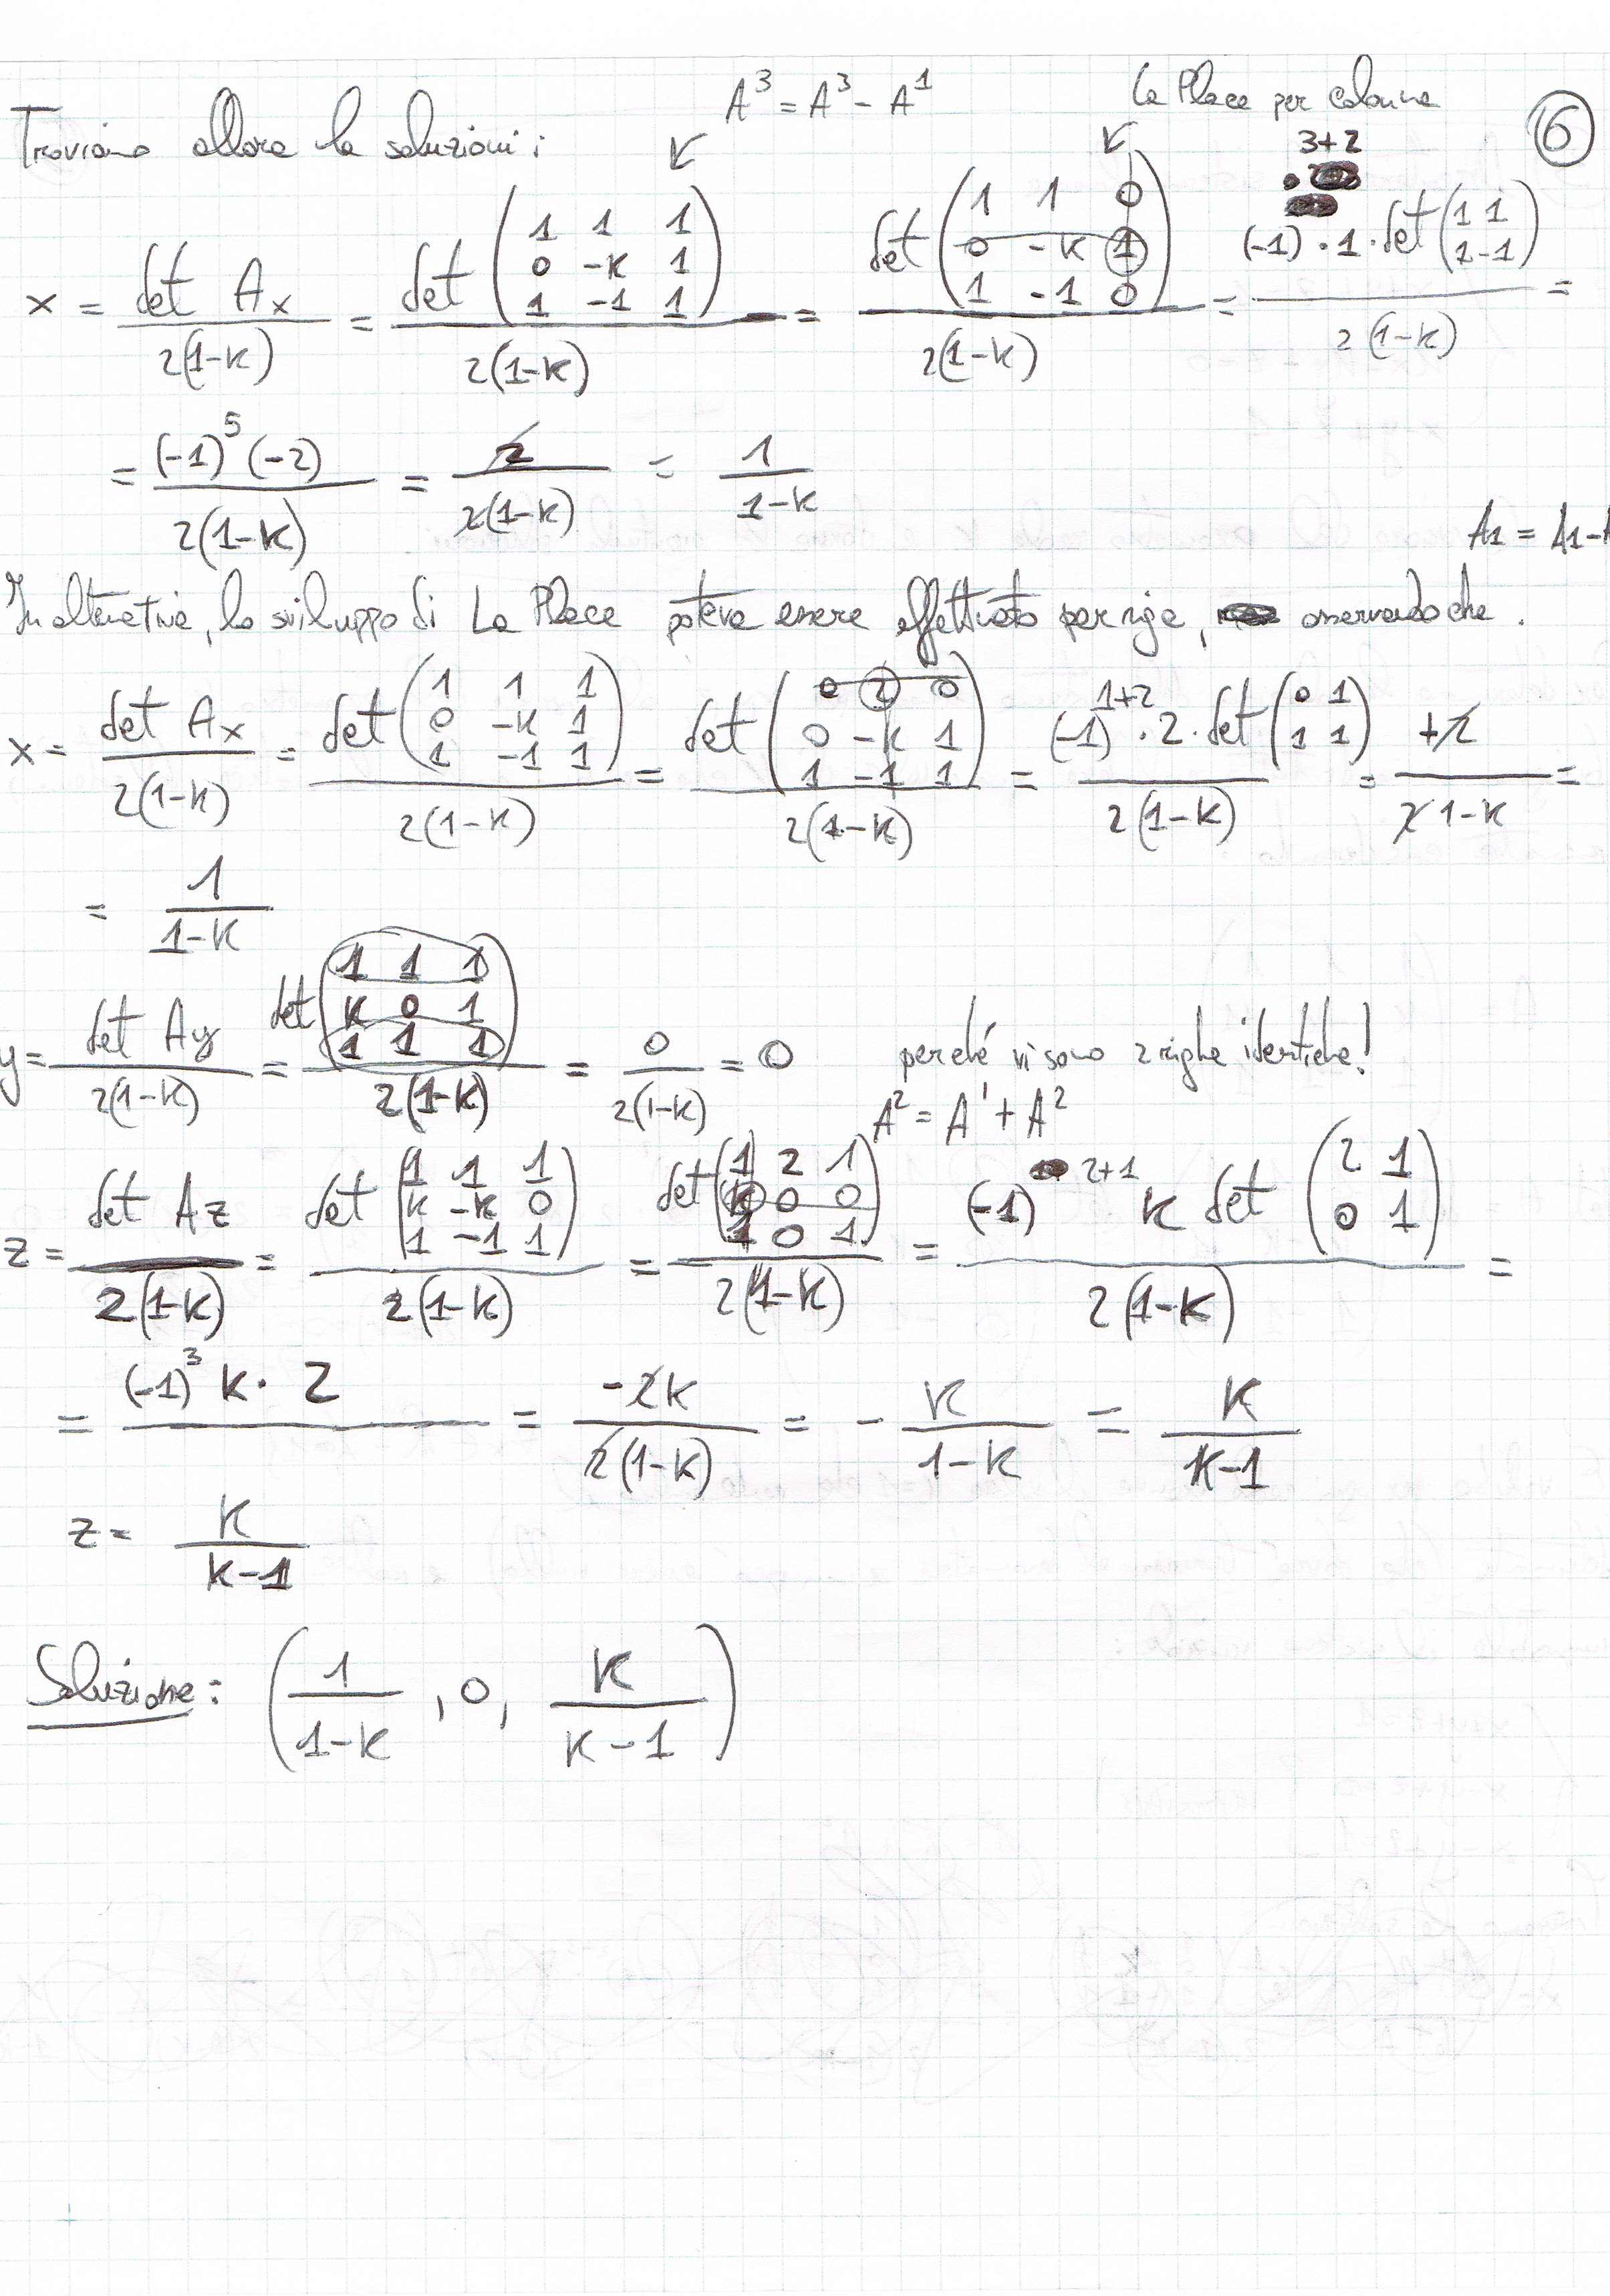 A³ = A³ - A¹
La Place per colonna
6
Troviamo allora le soluzioni:
x = det Ax / 2(1-k) = det (1 1 1; 0 -k 1; 1 -1 1) / 2(1-k) = det (1 1 0; 0 -k 1; 1 -1 0) / 2(1-k) = (-1)³⁺² · 1 · det (1 1; 1 -1) / 2(1-k) =
= (-1)⁵ (-2) / 2(1-k) = 2 / 2(1-k) = 1 / 1-k
A1 = A1-
In alternativa, lo sviluppo di La Place poteva essere effettuato per riga, osservando che.
x = det Ax / 2(1-k) = det (1 1 1; 0 -k 1; 1 -1 1) / 2(1-k) = det (0 2 0; 0 -k 1; 1 -1 1) / 2(1-k) = (-1)¹⁺² · 2 · det (0 1; 1 1) / 2(1-k) = +2 / 2 1-k =
= 1 / 1-k
y = det Ay / 2(1-k) = det (1 1 1; k 0 1; 1 1 1) / 2(1-k) = 0 / 2(1-k) = 0 perché vi sono 2 righe identiche!
A² = A¹ + A²
z = det Az / 2(1-k) = det (1 1 1; k -k 0; 1 -1 1) / 2(1-k) = det (1 2 1; k 0 0; 1 0 1) / 2(1-k) = (-1)²⁺¹ k det (2 1; 0 1) / 2(1-k) =
= (-1)³ k · 2 / = -2k / 2(1-k) = - k / 1-k = k / k-1
z = k / k-1
Soluzione: (1 / 1-k , 0, k / k-1)